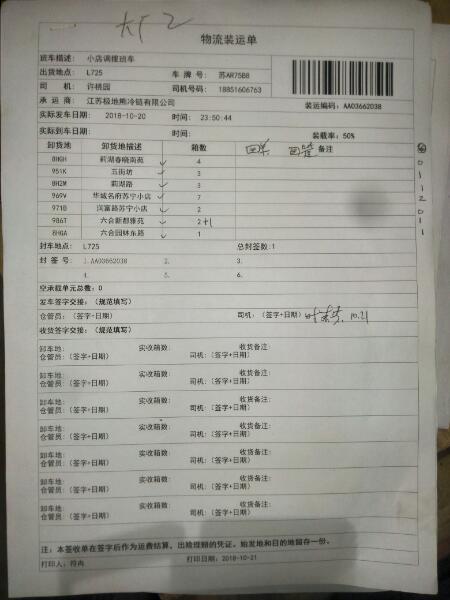 物流装运单
班车描述: 小店调拨班车
出货地点: L725 车 牌 号: 苏AR75B8
司 机: 许桃园 司机号码: 18851606763
承 运 商: 江苏极地熊冷链有限公司 装运编码: AA03662038
实际发车日期: 2018-10-20 时间: 23:50:44
实际到车日期: 时间: 装载率: 50%
卸货地 卸货地描述 箱数 备注
8HGH 莉湖春晓南苑 4
951K 五街坊 3
8H2M 莉湖路 3
969V 华城名府苏宁小店 7
971D 润富路苏宁小店 2
986T 六合新都雅苑 2+1
8HGA 六合园林东路 1
封车地点: L725 总封签数:1
封 签 号: 1.AA03662038 2. 3.
4. 5. 6.
空承载单元总数: 0
发车签字交接: (规范填写)
仓管员: (签字+日期) 司机: (签字+日期) 10.21
收货签字交接: (规范填写)
卸车地: 实收箱数: 收货备注:
仓管员: (签字+日期) 司机: (签字+日期)
卸车地: 实收箱数: 收货备注:
仓管员: (签字+日期) 司机: (签字+日期)
卸车地: 实收箱数: 收货备注:
仓管员: (签字+日期) 司机: (签字+日期)
卸车地: 实收箱数: 收货备注:
仓管员: (签字+日期) 司机: (签字+日期)
卸车地: 实收箱数: 收货备注:
仓管员: (签字+日期) 司机: (签字+日期)
卸车地: 实收箱数: 收货备注:
仓管员: (签字+日期) 司机: (签字+日期)
卸车地: 实收箱数: 收货备注:
仓管员: (签字+日期) 司机: (签字+日期)
注: 本签收单在签字后作为运费结算、出险理赔的凭证。始发地和目的地留存一份。
打印人: 符冉 打印日期: 2018-10-21